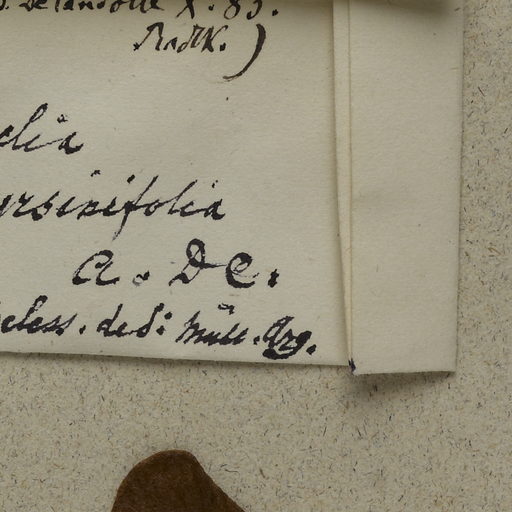 Decandolle X. 83.
Radlk.)
olia
yrsinifolia
A. DC.
celess. ded: Müll. Arg.